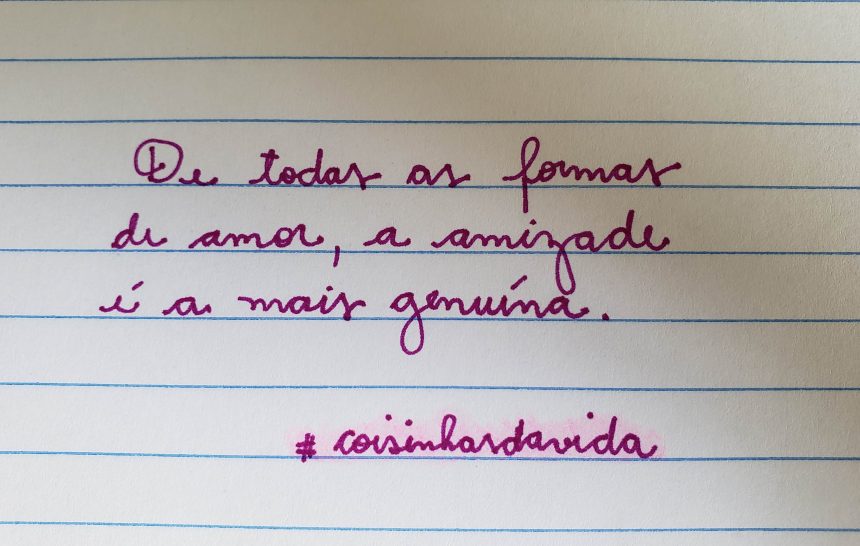 De todas as formas
de amor, a amizade
é a mais genuína.
#coisinhasdavida